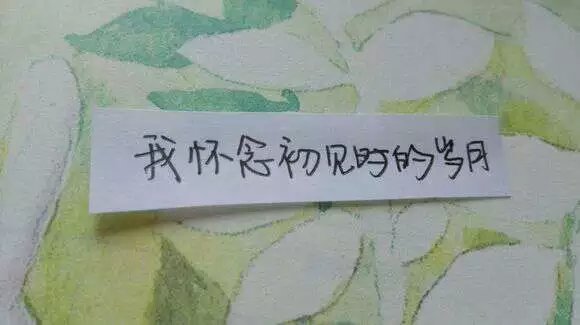 我怀念初见时的岁月